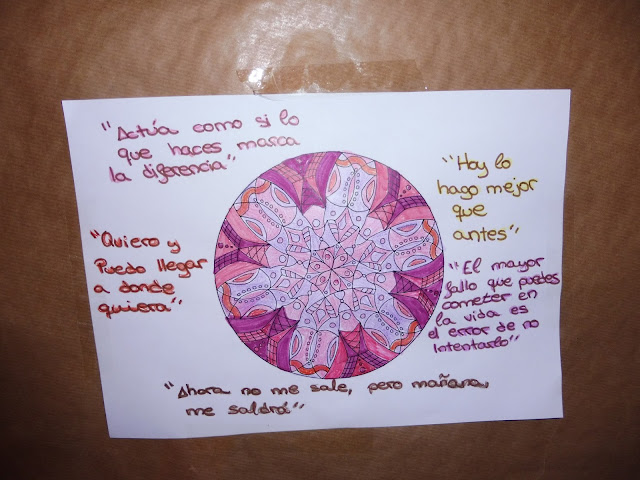 "Actúa como si lo
que haces marca
la diferencia"
"Hoy lo
hago mejor
que
antes"
"Quiero y
Puedo llegar
a donde
quiera"
"El mayor
fallo que puedes
cometer en
la vida es
el error de no
Intentarlo"
"Ahora no me sale, pero mañana,
me saldrá"